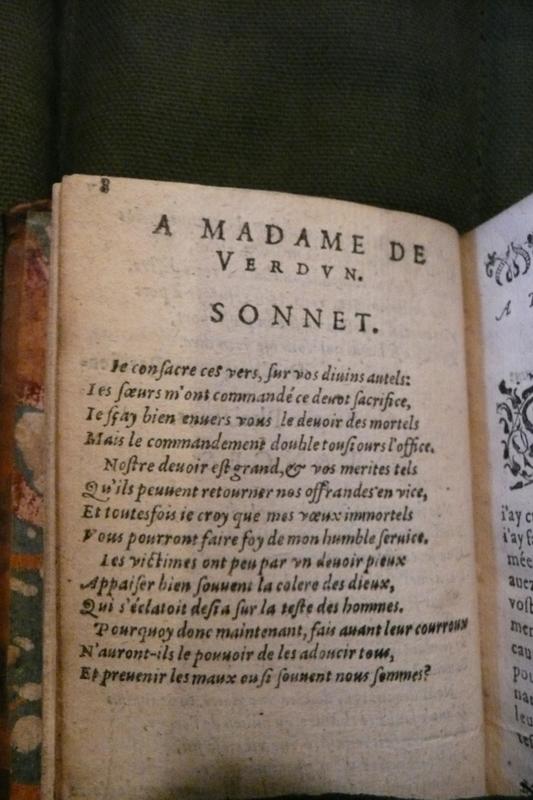 8
A MADAME DE
VERDVN.
SONNET.
Ie consacre ces vers, sur vos diuins autels:
Les sœurs m'ont commandé ce deuot sacrifice,
Ie sçay bien enuers vous le deuoir des mortels
Mais le commandement double tousiours l'office.
Nostre deuoir est grand, & vos merites tels
Qu'ils peuuent retourner nos offrandes en vice,
Et toutesfois ie croy que mes vœux immortels
Vous pourront faire foy de mon humble seruice.
Les victimes ont peu par vn deuoir pieux
Appaiser bien souuent la colere des dieux,
Qui s'éclatoit desia sur la teste des hommes.
Pourquoy donc maintenant, fais auant leur courroux
N'auront-ils le pouuoir de les adoucir tous,
Et preuenir les maux ou si souuent nous sommes?
A
i'ay
i'ay
mée
auez
vost
mer
cau
pou
nau
leu